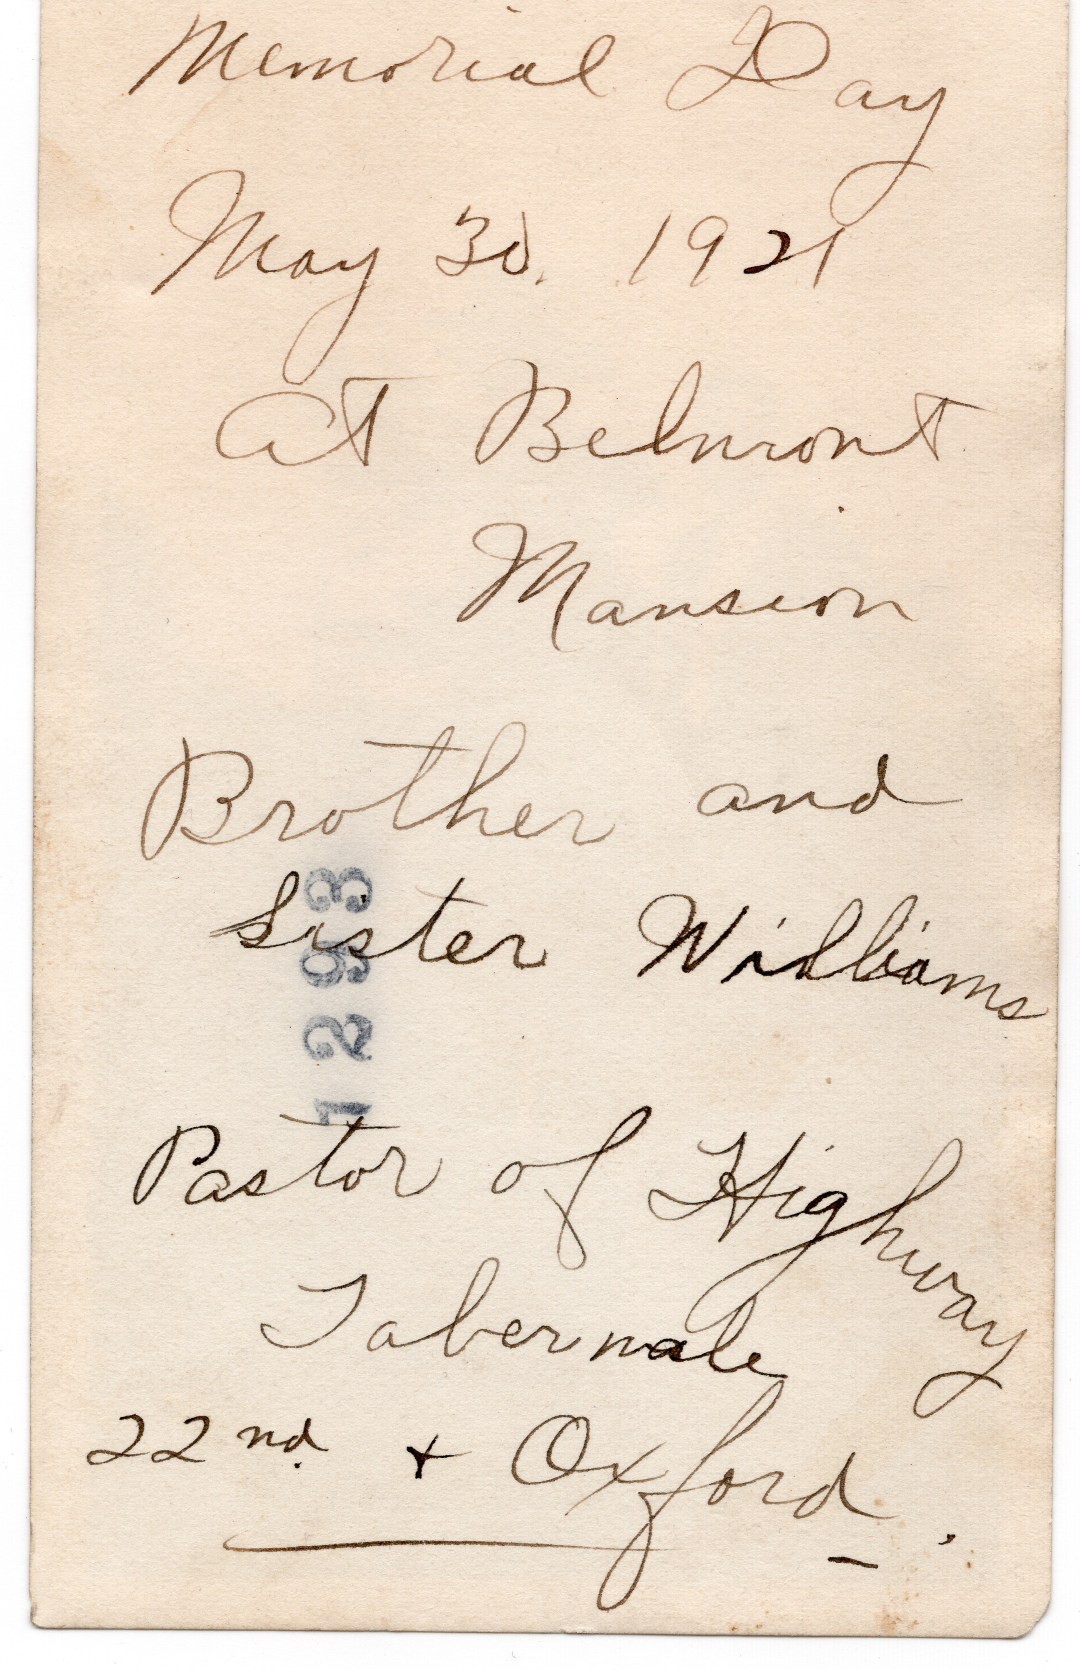 Memorial Day
May 30, 1921
at Belmont
Mansion
Brother and
Sister Williams
1293
Pastor of Highway
Tabernale
22nd. + Oxford.